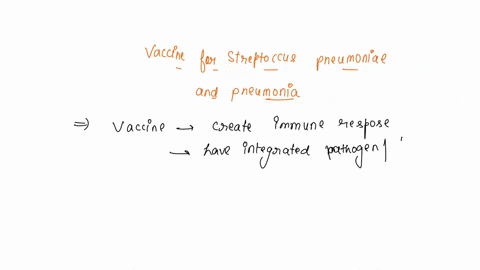 Vaccine for Streptoccus pneumoniae
and pneumonia
⇒ Vaccine → create immune respose
→ have integrated pathogen/